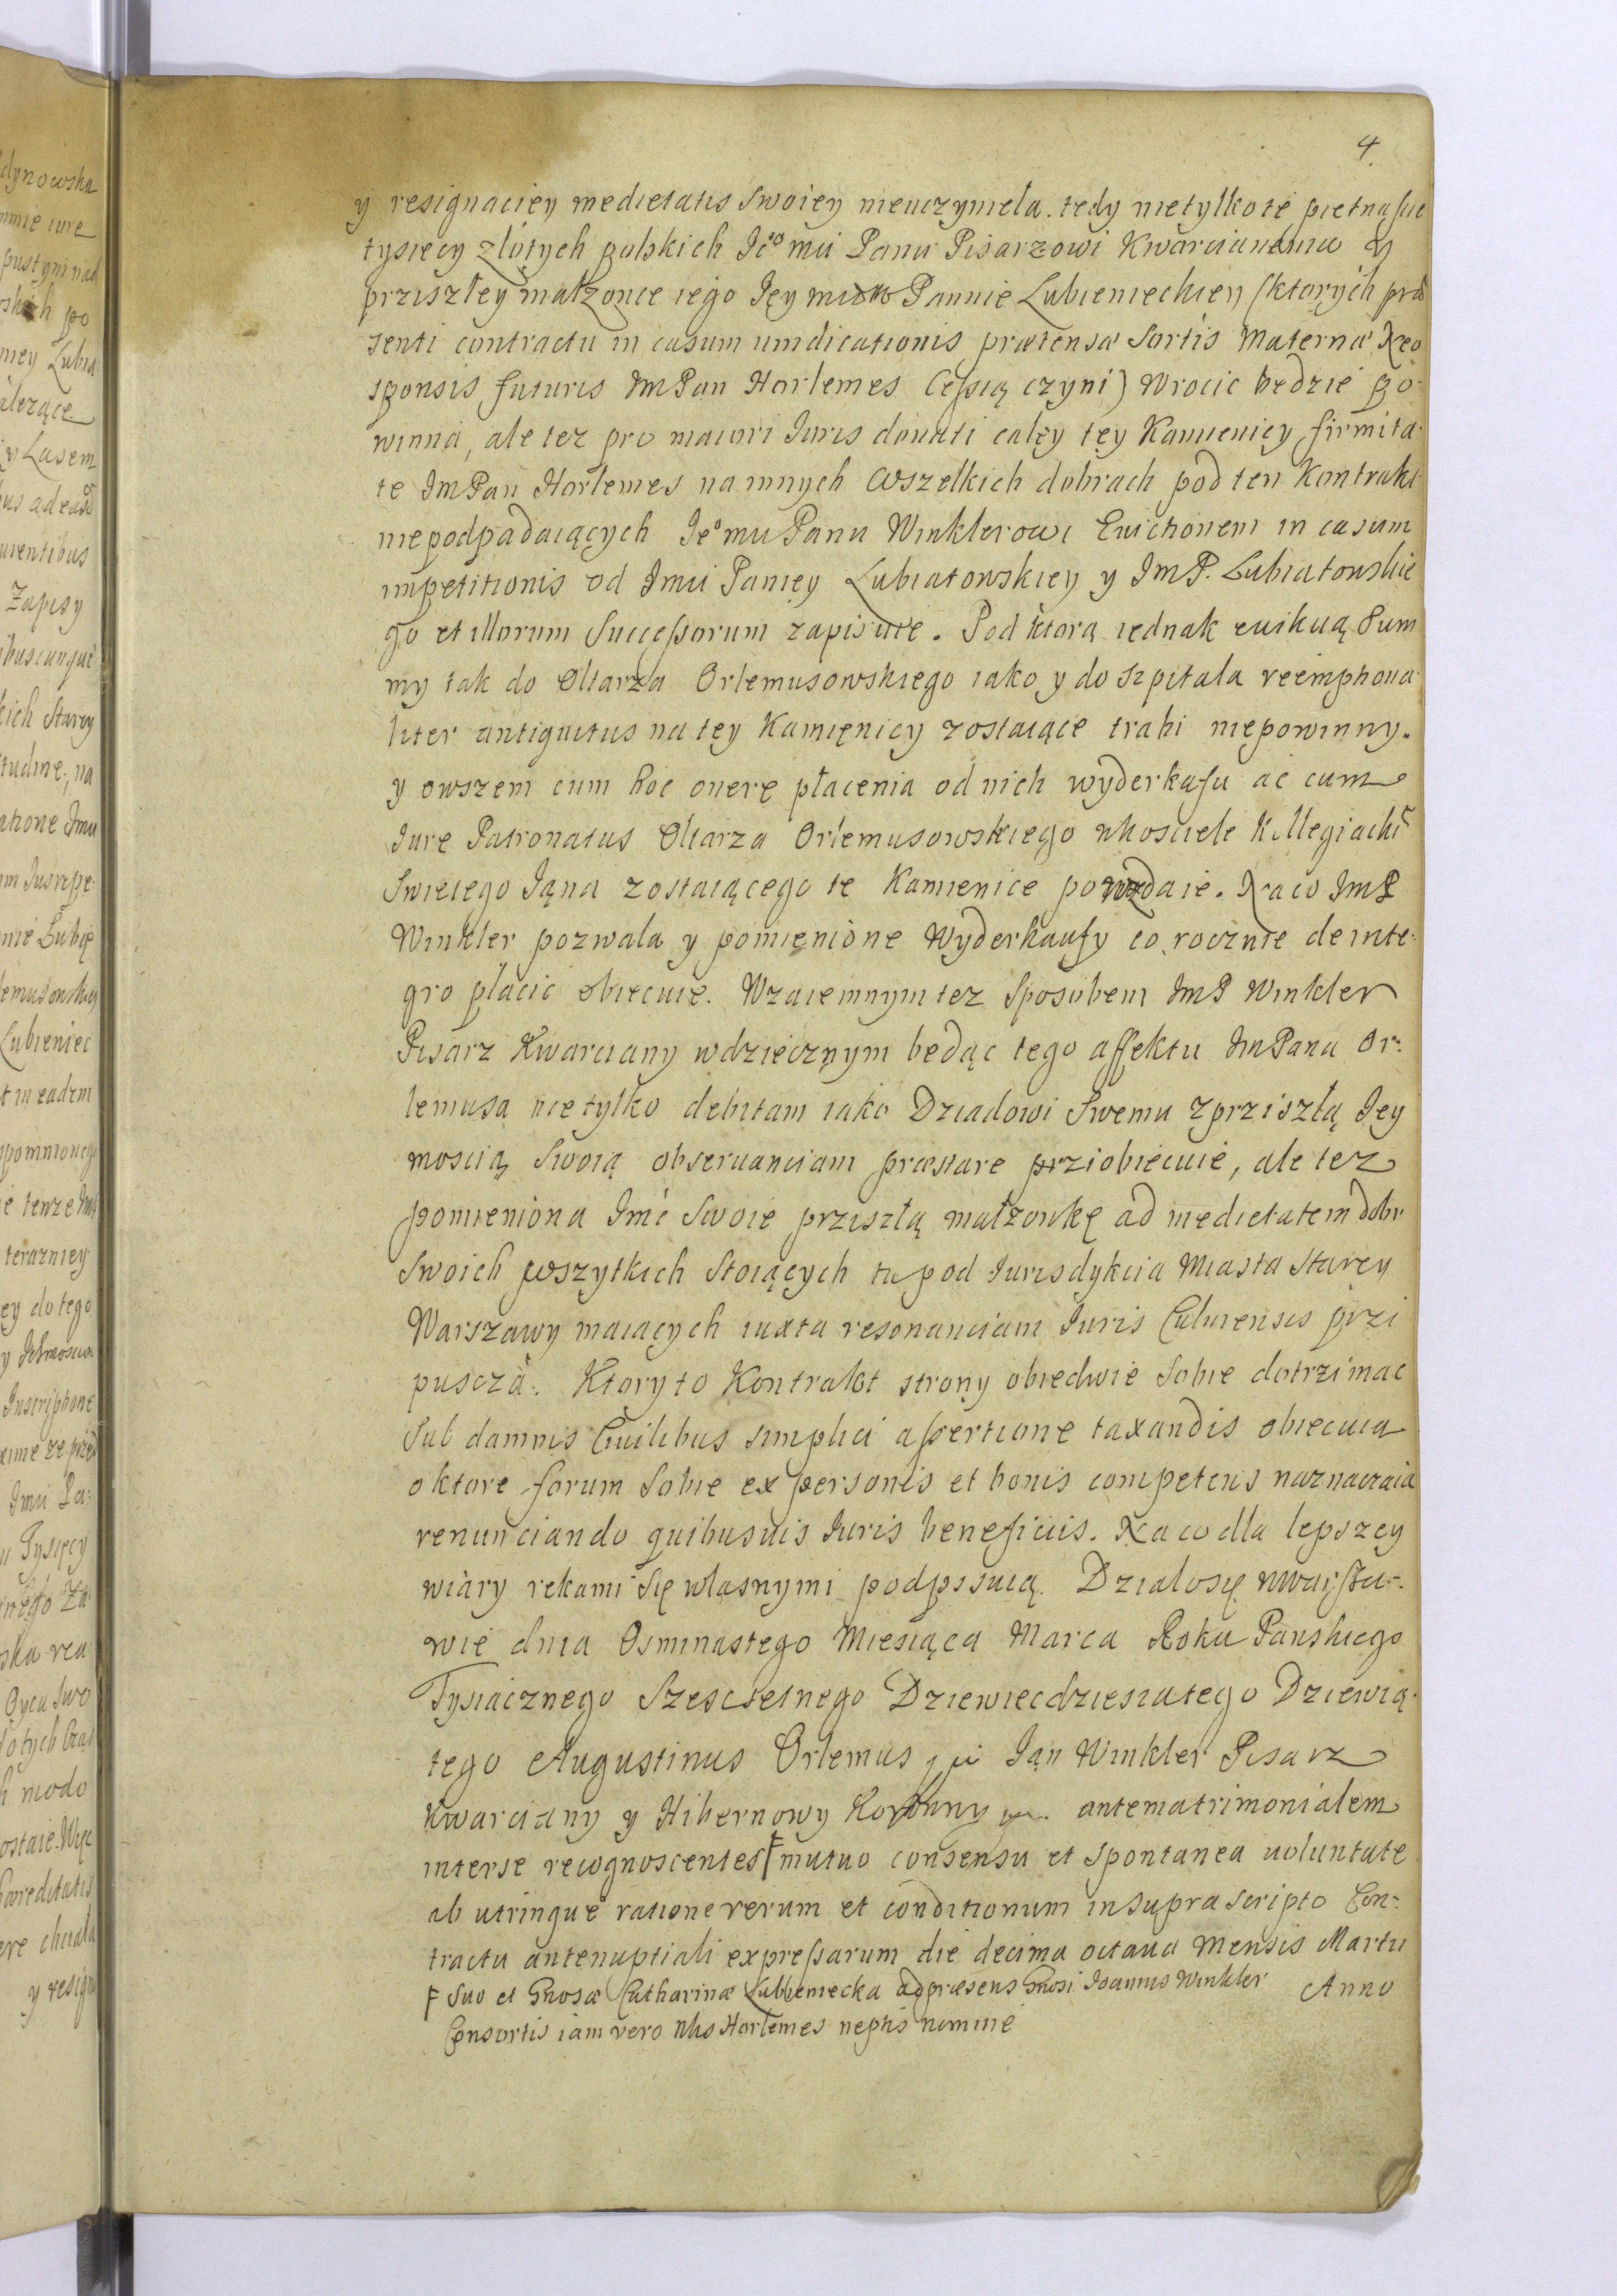 4.
y resignaciey medietatis Swoiey nieuczyniela. tedy nietylko te pietnascie
tysięcy złotych polskich Jeo mu Panu Pisarzowi Kwarcianemu y
prziszłey małzonce iego Jey Pannie Lubienieckiey (ktorych præ
senti contractu in casum uindicationis prætensæ Sortis Maternæ Neo
sponsis futuris ImPan Horlemes Cessią czyni) Wrocic będzie po-
winna, ale tez pro maiori Iuris donati całey tey Kamienicy firmita-
te ImPan Horlemes na innych wszelkich dobrach pod ten Kontrakt
niepodpadaiących Jeomu Panu Winklerowi Euictionem in casum
impetitionis od Imu Paniey Lubiatowskiey y ImP. Lubiatowskie
go et illorum Successorum zapisuie. Pod ktorą iednak euikcią Sum
my tak do Ołtarza Orlemusowskiego iako y do szpitala reemptiona
liter antiquitus na tey Kamięnicy zostaiące trahi niepowinny.
y owszem cum hoc onere płacenia od nich wyderkafu ac cum
Iure Patronatus Ołtarza Orlemusowskiego wkosciele Kollegiackim
Swietego Jąna zostaiącego te Kamienice powzdaie. Na co ImP
Winkler pozwala y pomienione Wyderkaufy co rocznie de inte-
gro płacic obiecuie. Wzaiemnym tez Sposobem ImP Winkler
Pisarz Kwarciany wdziecznym będąc tego affektu ImPana Or-
lemusa nie tylko debitam iako Dziadowi Swemu z prziszłą Jey
moscią Swoią obseruanciam præstare przioبiecuie, ale tez
pomieniona Imć Swoie prziszłą małzonkę ad medietatem dobr
Swoich wszytkich Stoiących tu pod Iurisdykcia Miasta Starey
Warszawy maiących iuxta resonanciam Iuris Culmensis przi
puscza. Ktory to Kontrakt strony obiedwie Sobie dotrzimac
Sub damnis Ciuilibus simplici assertione taxandis obiecuią
o ktore forum Sobie ex personis et bonis competens naznaczaią
renunciando quibusuis Iuris beneficiis. Na co dla lepszey
wiary rekami się własnymi podpisuią. Działosię wWarsza-
wie dnia Osmnastego Miesiąca Marca Roku Pańskiego
Tysiącznego Szescsetnego Dziewiecdziesiatego Dziewią-
tego Augustinus Orlemus Jąn Winkler Pisarz
Kwarciany y Hibernowy Koronny antematrimonialem
interse recognoscentes ꝉ mutuo consensu et spontanea uoluntate
ab utrinque ratione rerum et conditionum in suprascripto Con-
tractu antenuptiali expressarum die decima octaua Mensis Martii
ꝉ Suo et Gnosæ Catharinæ Lubieniecka ad præsens Gnosi Ioannis Winkler Anno
Consortis iam vero Nlis Horlemes neptis nomine